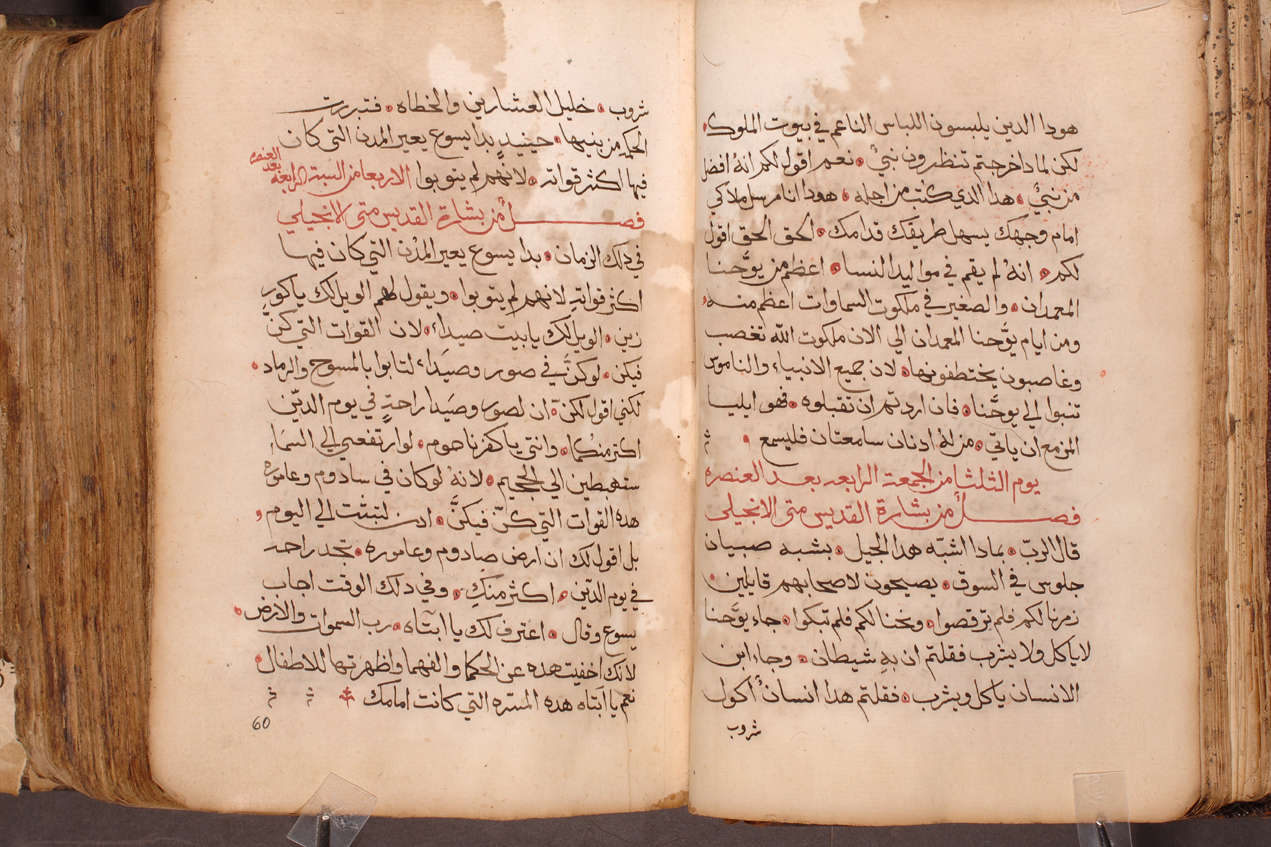 هودا الدين يلبسون اللباس الناعم في بيوت الملوك
لكن لمادا خرجتم تنظرون نبيٌ نعم اقول لكم انه افضل
من نبيٌ هدا الدي كتب من اجله هودا انا مرسل ملاكي
امام وجهك يسهل طريقك قدامك الحق الحق اقول
لكم انه لم يقم في مواليد النسا اعظم من يوحنا
المعمدان والصغير في ملكوت السماوات اعظم منه
ومن ايام يوحنا المعمدان الي الان ملكوت الله تغصب
وغاصبون يختطفونها لان جميع الانبياء والناموس
تنبوا الي يوحنا فان اردتم ان تقبلوه فهو ايليا
المزمع ان ياتي من له ادنان سامعتان فليسمع
يوم الثلثا من الجمعة الرابعه بعد العنصره
فصل من بشارة القديس متى الانجيلي
قال الرب بمادا اشبه هدا الجيل يشبه صبيان
جلوس في السوق يصيحون لاصحابهم قايلين
زمرنا لكم فلم ترقصوا ونحنا لكم فلم تبكوا جاء يوحنا
لا ياكل ولا يشرب فقلتم ان به شيطان وجاء ابن
الانسان ياكل ويشرب فقلتم هدا انسان اكول
شروب
شروب خليل العشارين والخطاه فتبررت
الحكمه من بنيها حينيدٍ بدا يسوع يعير المدن التي كان
فيها اكثر قواته لانهم لم يتوبوا الاربعا من السبة الرابعه
بعد العنصره
فصل من بشارة القديس متى الانجيلي
في دلك الزمان بدا يسوع يعير المدن التي كان فيها
اكثر قواته لانهم لم يتوبوا ويقول لهم الويل لك يا كور
زين الويل لك يا بيت صيدا لان القوات التي كنّ
فيكن لو كنّ في صور وصيدا لتابوا بالمسوح والرماد
لكني اقول لكن ان لصور وصيدا راحةٍ في يوم الدين
اكتر منكما وانتي يا كفرناحوم لو ارتفعتي الي السما
ستهبطين الي الجحيم لانه لو كان في سادوم وعاموره
هده القوات التي كنّ فيكنّ ادن لتبتت الي اليوم
بل اقول لك ان ارض صادوم وعاموره تجد راحه
في يوم الدين اكثر منكِ وفي دلك الوقت اجاب
يسوع وقال اعترف لك يا ابتاه رب السموات والارض
لانك اخفيت هده عن الحكما والفهما واظهرتها للاطفال
نعم يا ابتاه هده المسره التي كانت امامك
60